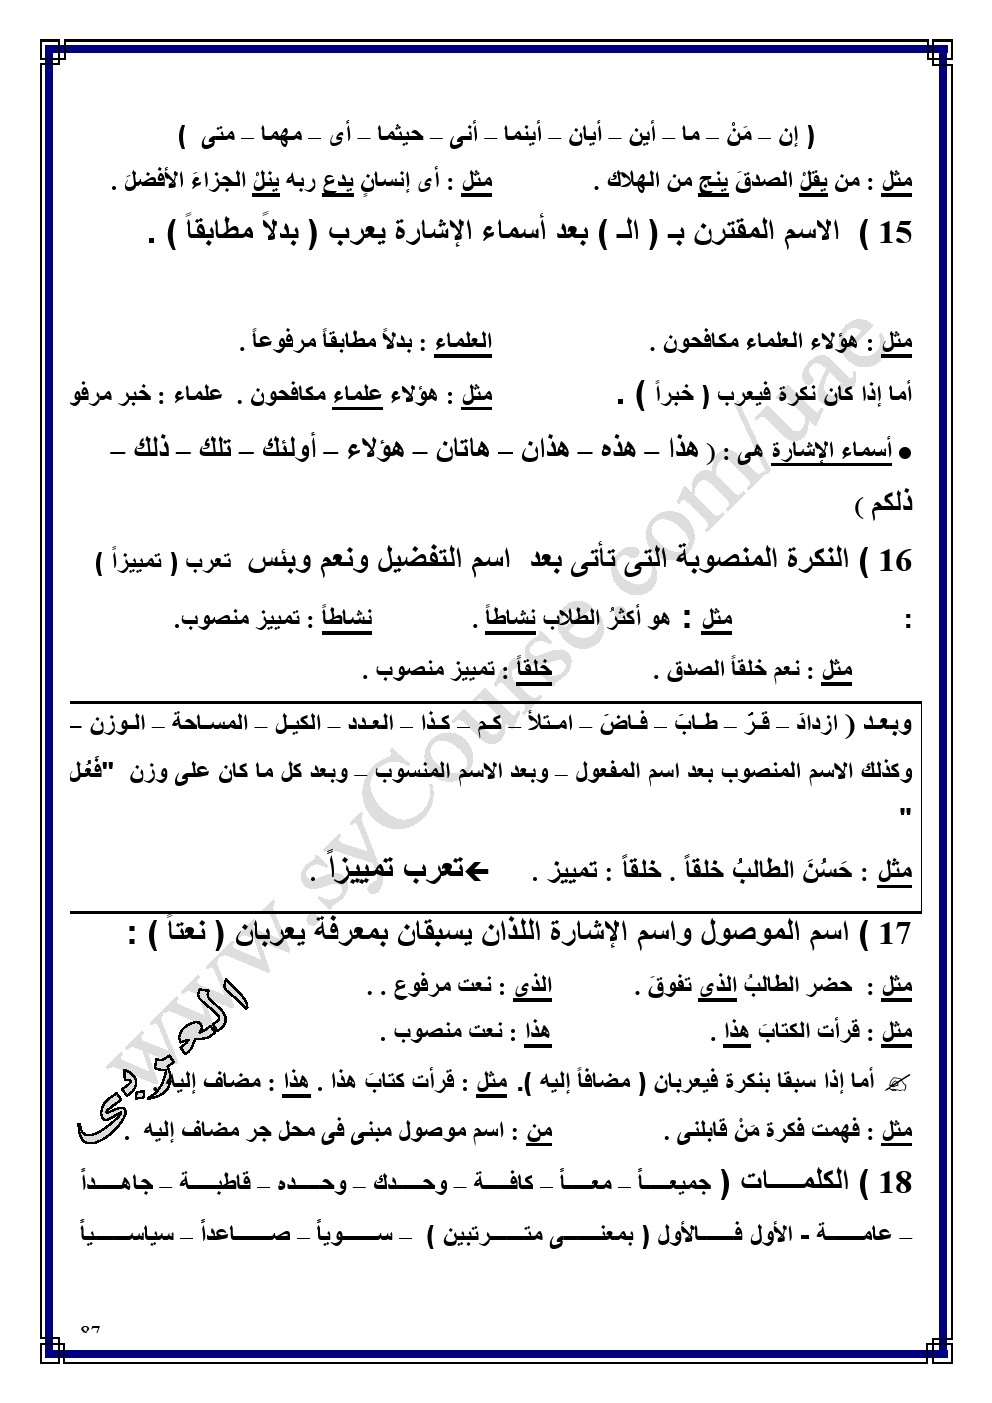 ( إن – مَنْ – ما – أين – أيان – أينما – أنى – حيثما – أى – مهما – متى )
مثل : من يقلْ الصدقَ ينج من الهلاك . مثل : أى إنسانٍ يدع ربه ينلْ الجزاءَ الأفضلَ .
15 ) الاسم المقترن بـ ( الـ ) بعد أسماء الإشارة يعرب ( بدلاً مطابقاً ) .
مثل : هؤلاء العلماء مكافحون . العلماء : بدلاً مطابقاً مرفوعاً .
أما إذا كان نكرة فيعرب ( خبراً ) . مثل : هؤلاء علماء مكافحون . علماء : خبر مرفو
● أسماء الإشارة هى : ( هذا – هذه – هذان – هاتان – هؤلاء – أولئك – تلك – ذلك –
ذلكم )
16 ) النكرة المنصوبة التى تأتى بعد اسم التفضيل ونعم وبئس تعرب ( تمييزاً )
: مثل : هو أكثرُ الطلاب نشاطاً . نشاطاً : تمييز منصوب.
مثل : نعم خلقاً الصدق . خلقاً : تمييز منصوب .
وبعـد ( ازدادَ – قـرّ – طـابَ – فـاضَ – امـتلأ – كـم – كـذا – العـدد – الكيـل – المسـاحة – الـوزن –
وكذلك الاسم المنصوب بعد اسم المفعول – وبعد الاسم المنسوب – وبعد كل ما كان على وزن "فَعُل
"
مثل : حَسُنَ الطالبُ خلقاً . خلقاً : تمييز . ←تعرب تمييزاً .
17 ) اسم الموصول واسم الإشارة اللذان يسبقان بمعرفة يعربان ( نعتاً ) :
مثل : حضر الطالبُ الذى تفوقَ . الذى : نعت مرفوع . .
مثل : قرأت الكتابَ هذا . هذا : نعت منصوب .
✍ أما إذا سبقا بنكرة فيعربان ( مضافاً إليه ). مثل : قرأت كتابَ هذا . هذا : مضاف إليه .
مثل : فهمت فكرة مَنْ قابلنى . من : اسم موصول مبنى فى محل جر مضاف إليه .
18 ) الكلمـــات ( جميعـــاً – معـــاً – كافـــة – وحـــدك – وحـــده – قاطبـــة – جاهـــداً
– عامـــة - الأول فـــالأول ( بمعنـــى متـــرتبين ) – ســـوياً – صـــاعداً – سياســـياً
87
www.syCourse.com/uae
العربى